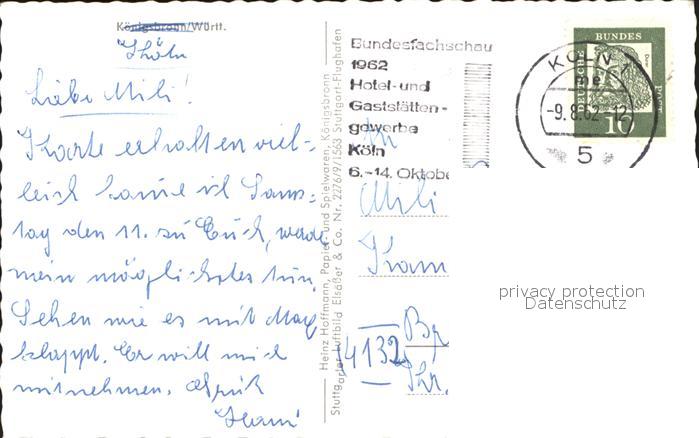 Königsbronn/Württ.
Köln
Liebe Mili!
Karte erhalten viel-
leich komme ich Sams-
tag den 11. zu Euch, werde
mein möglichstes tun.
Sehen wie es mit Max
klappt. Er will mich
mitnehmen. Gruß
Hami
Heinz Hoffmann, Papier- und Spielwaren, Königsbronn
Stuttgarter Luftbild Elsäßer & Co. Nr. 2276/9/1563 Stuttgart-Flughafen
Bundesfachschau
1962
Hotel- und
Gaststätten-
gewerbe
Köln
6.-14. Oktobe
DEUTSCHE BUNDES POST
10
KÖLN 1
me
-9.8.62-12
5
An
Mili
Kram
14132
privacy protection
Datenschutz